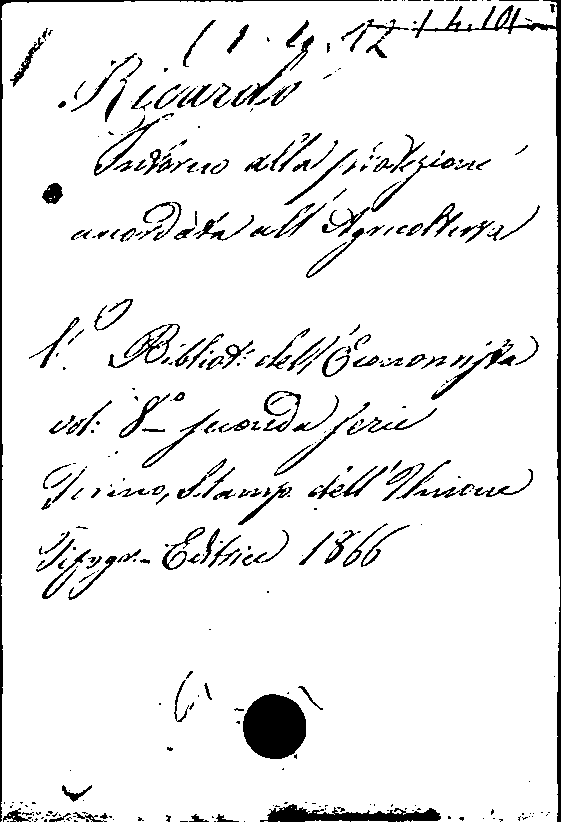 1. 4. 12 1. 4. 101
Ricardo
Intorno alla protezione
accordata all'Agricoltura
V.° Bibliot: dell'Economista
vol: 8° seconda serie
Torino, Stamp. dell'Unione
Tipogr.- Editrice 1866